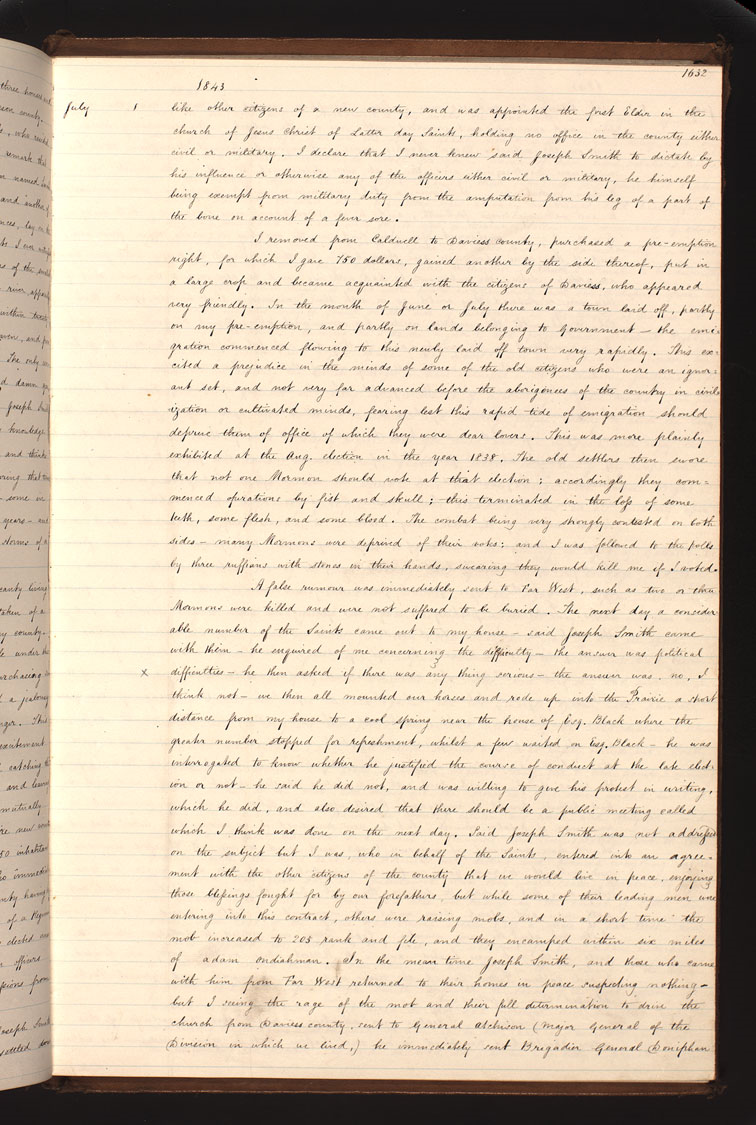 1632
1843
July 1 like other citizens of a new county, and was appointed the first Elder in the
church of Jesus Christ of Latter day Saints, holding no office in the county either
civil or military. I declare that I never knew said Joseph Smith to dictate by
his influence or otherwise any of the officers either civil or military, he himself
being exempt from military duty from the amputation from his leg of a part of
the bone on account of a fever sore.
I removed from Caldwell to Daviess county, purchased a pre-emption
right, for which I gave 750 dollars, gained another by the side thereof, put in
a large crop and became acquainted with the citizens of Daviess, who appeared
very friendly. In the month of June or July there was a town laid off, partly
on my pre-emption, and partly on lands belonging to Government — the emi-
gration commenced flowing to this newly laid off town very rapidly. This ex-
cited a prejudice in the minds of some of the old citizens who were an ignor-
ant set, and not very far advanced before the aborigenees of the country in civil-
ization or cultivated minds, fearing lest this rapid tide of emigration should
deprive them of office of which they were dear lovers. This was more plainly
exhibited at the Aug. election in the year 1838. The old settlers then swore
that not one Mormon should vote at that election; accordingly they com-
menced operations by fist and skull; this terminated in the loss of some
teeth, some flesh, and some blood. The combat being very strongly contested on both
sides — many Mormons were deprived of their votes; and I was followed to the polls
by three ruffians with stones in their hands, swearing they would kill me if I voted.
A false rumour was immediately sent to Far West, such as two or three
Mormons were killed and were not suffered to be buried. The next day a consider-
able number of the Saints came out to my house — said Joseph Smith came
with them — he enquired of me concerning the difficulty — the answer was political
x difficulties — he then asked if there was any thing serious — the answer was, no, I
think not — we then all mounted our horses and rode up into the Prairie a short
distance from my house to a cool spring near the house of Esq. Black where the
greater number stopped for refreshment, whilst a few waited on Esq. Black — he was
interrogated to know whether he justified the course of conduct at the late elect-
ion or not — he said he did not, and was willing to give his protest in writing,
which he did, and also desired that there should be a public meeting called
which I think was done on the next day. Said Joseph Smith was not addressed
on the subject but I was, who in behalf of the Saints, entered into an agree-
ment with the other citizens of the county that we would live in peace, enjoying
those blessings fought for by our forefathers, but while some of their leading men were
entering into this contract, others were raising mobs, and in a short time the
mob increased to 205 rank and file, and they encamped within six miles
of adam ondiahman. In the mean time Joseph Smith, and those who came
with him from Far West returned to their homes in peace suspecting nothing —
but I seeing the rage of the mob and their full determination to drive the
church from Daviess county, sent to General Atchison (Major General of the
Division in which we lived,) he immediately sent Brigadier General Doniphan